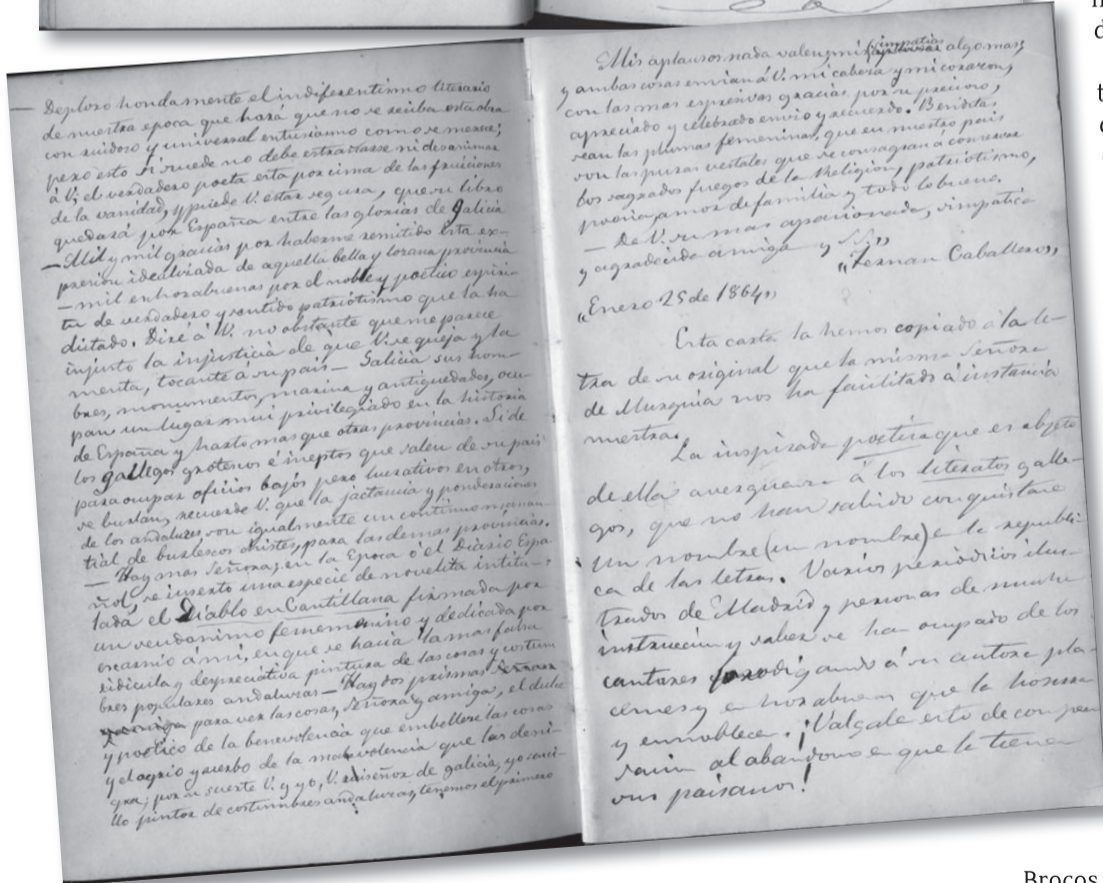 — Deploro hondamente el indiferentismo literario
de nuestra epoca que hara que no se reciba esta obra
con ruidoso y universal entusiasmo como se merece;
pero esto si sucede no debe estrañarse ni desanimar
á V; el verdadero poeta esta por cima de las fruiciones
de la vanidad, y puede V. estar segura, que su libro
quedará por España entre las glorias de galicia
— Mil y mil gracias por haberme remitido esta ex-
presion idealizada de aquella bella y lozana provincia
— mil enhorabuenas por el noble y poetico espiri-
tu de verdadero y sentido patriótismo que la ha
dictado. Diré á V. no obstante que me parece
injusto la injusticia de que V. se queja y la
menta, tocante á su pais — Galicia sus hom-
bres, monumentos, marina y antiguedades, ocu
pan un lugar mui privilegiado en la historia
de España y harto mas que otras provincias. Si de
los gallegos grotescos é ineptos que salen de su pais
para ocupar oficios bajos pero lucrativos en otros,
se burlan, recuerde V. que la jactancia y ponderaciones
de los andaluzes son igualmente un continuo manan-
tial de burlescos chistes, para las demas provincias.
— Hay mas Señora; en la Epoca ó el Diario Espa
ñol, se inserto una especie de novelita intitu-
lada el Diablo en Cantillana firmada por
un seudonimo femenino y dedicada por
escarnio á mi, en que se hacia la mas falsa
ridicula y depreciativa pintura de las cosas y costum
bres populares andaluzas — Hay dos prismas
para ver las cosas, Señora y amiga, el dulce
y poético de la benevolencia que embellece las cosas
y el agrio y acerbo de la malevolencia que las deni-
gra; por su suerte V. y yo, V. ruiseñor de galicia, yo senci-
llo pintor de costumbres andaluzas, tenemos el primero
Mis aplausos nada valen, mis simpatias algo mas;
y ambas cosas envian á V. mi cabeza y mi corazon,
con las mas espresivas gracias por su precioso,
apreciado y celebrado envio y recuerdo. Benditas
sean las plumas femeninas, que en nuestro pais
son las puras vestales que se consagran á conservar
los sagrados fuegos de la Religion, patriotismo,
poesia, amor de familia y todo lo bueno.
— De V. su mas apasionada, simpática
y agradecida amiga y SS"
"Fernan Caballero"
"Enero 25 de 1864"
Esta carta la hemos copiado á la le-
tra de su original que la misma Señora
de Murguia nos ha facilitado á instancia
nuestra.
La inspirada poetisa que es objeto
de ella avergüenza á los literatos galle-
gos, que no han sabido conquistarse
un nombre (un nombre) en la republi-
ca de las letras. Varios periódicos ilus-
trados de Madrid y personas de mucha
instruccion y saber se han ocupado de los
cantares prodigando á su autora pla-
cemes y enhorabuenas que la honran
y ennoblecen. ¡Valgale esto de compen
sacion al abandono en que la tienen
sus paisanos!
Brocos